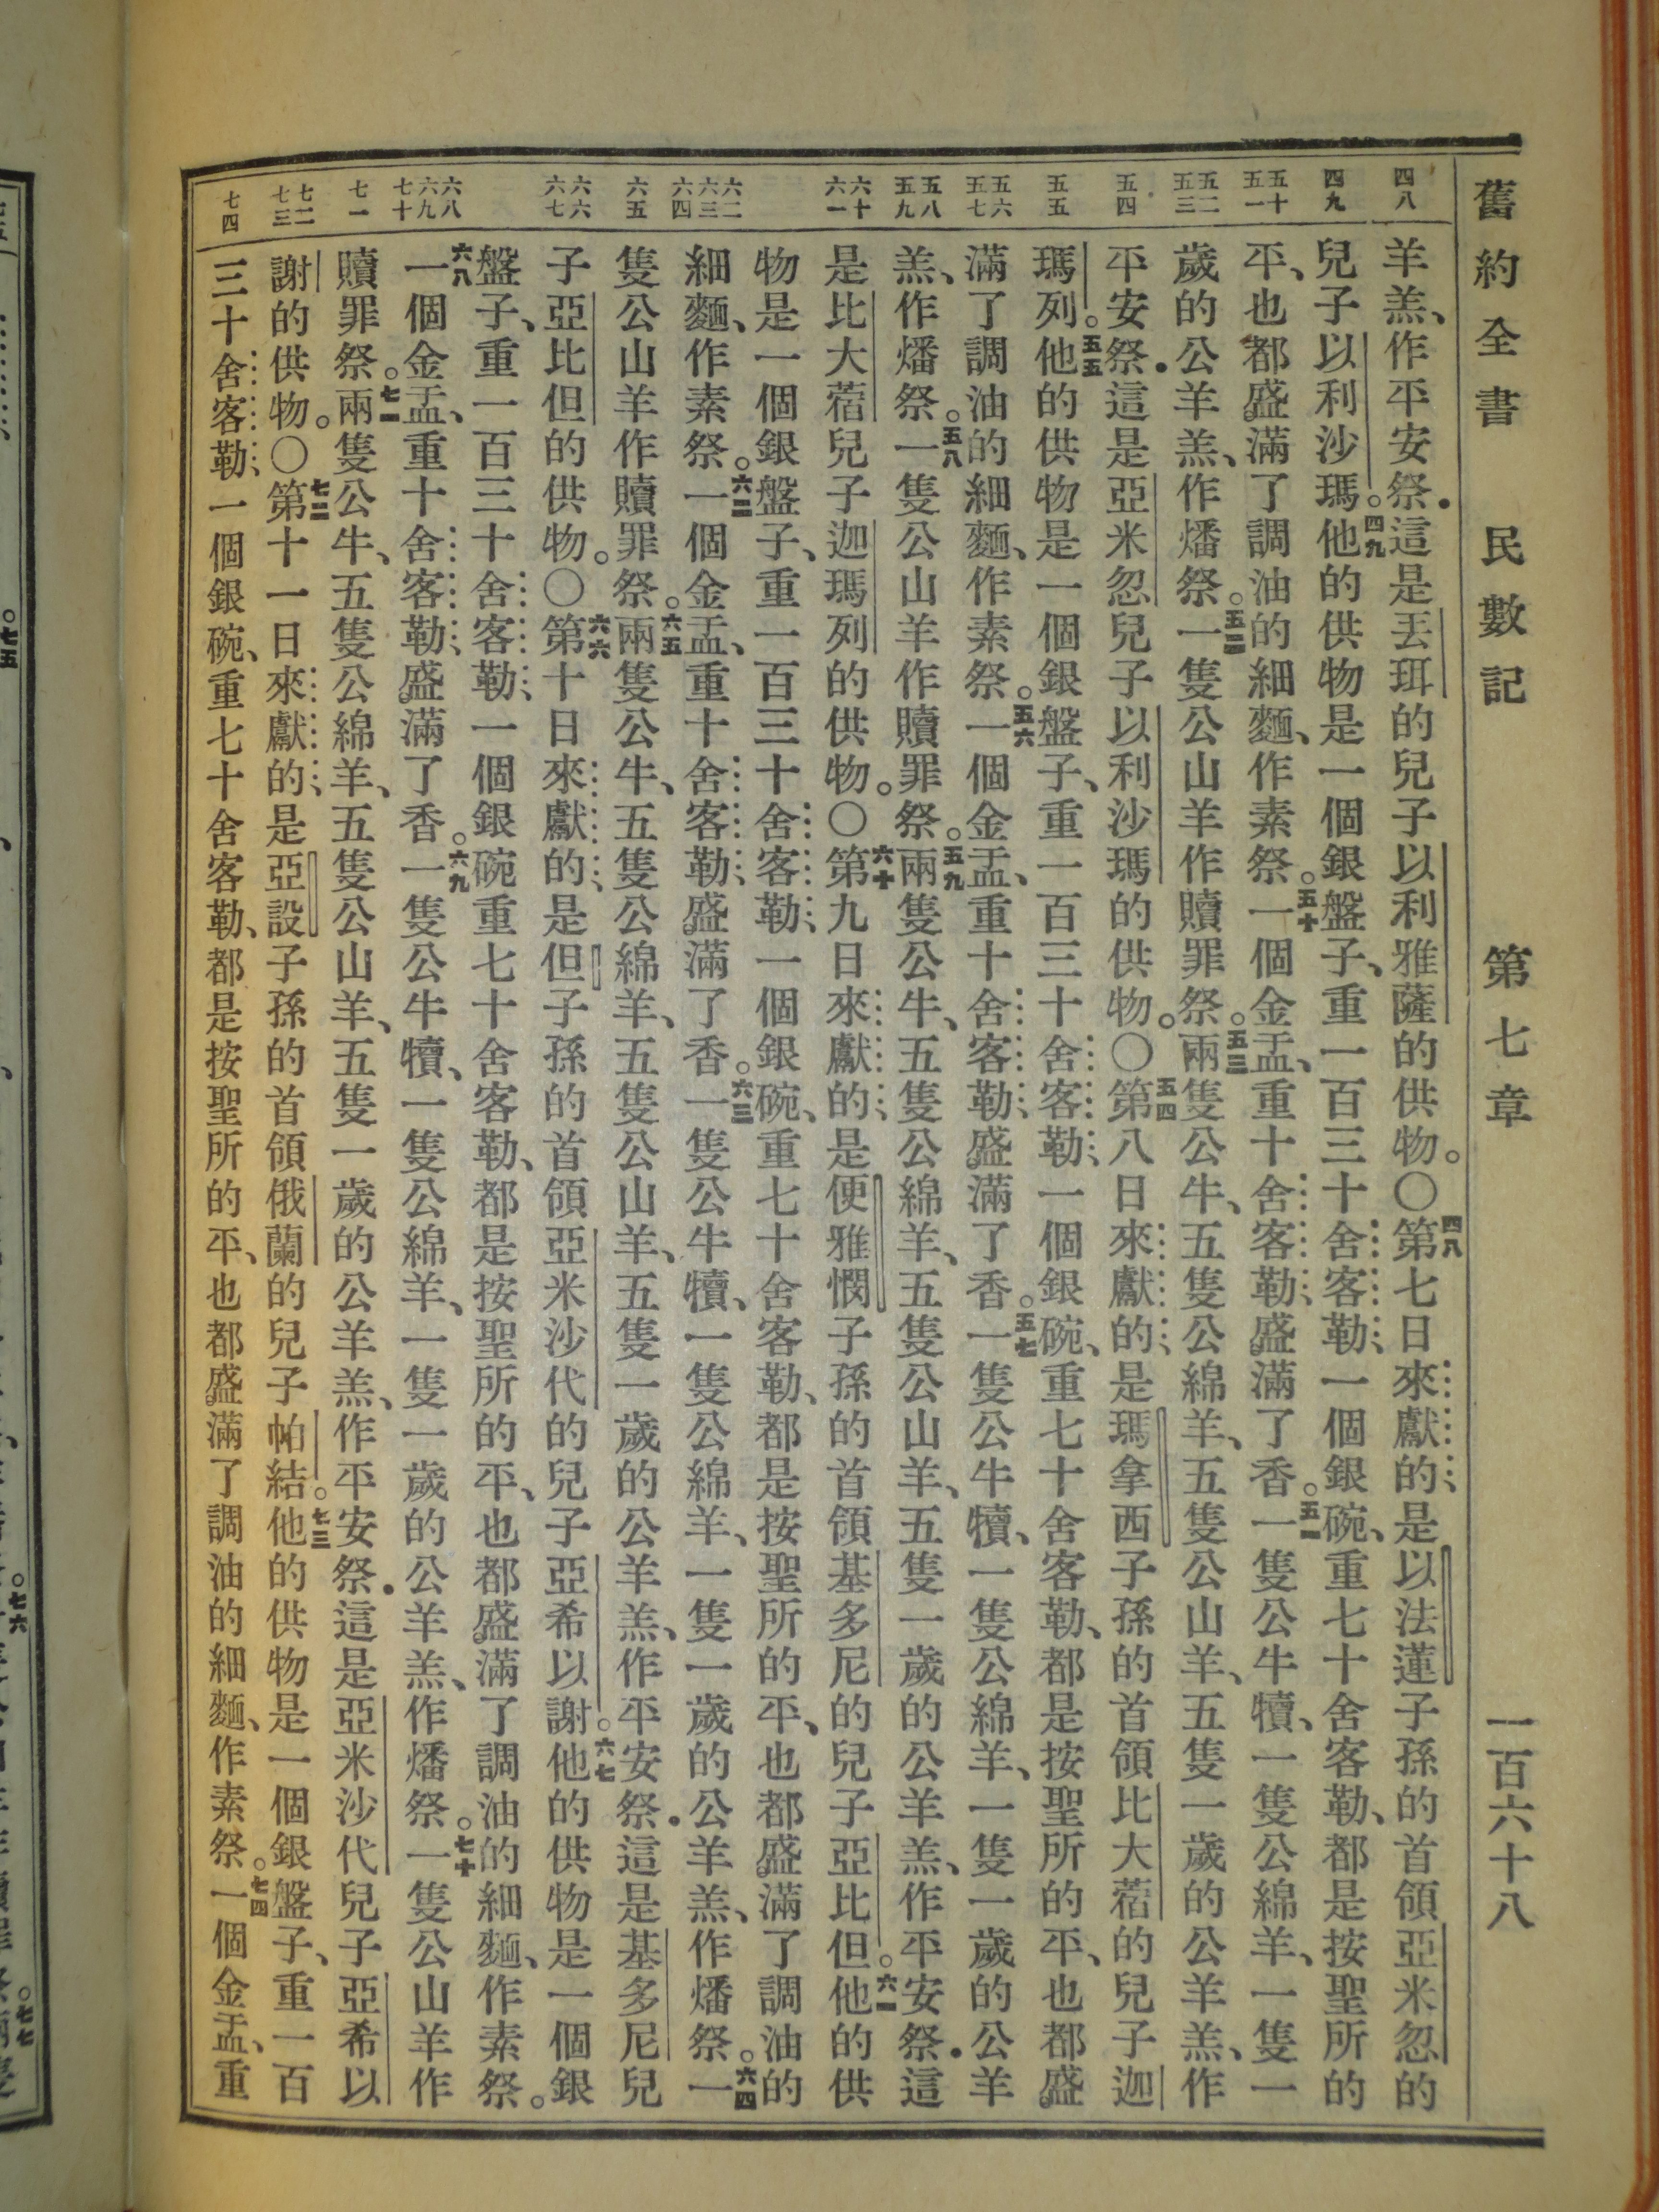 舊約全書　民數記　第七章　一百六十八
四八
四九
五十
五一
五二
五三
五四
五五
五六
五七
五八
五九
六十
六一
六二
六三
六四
六五
六六
六七
六八
六九
七十
七一
七二
七三
七四
羊羔、作平安祭．這是丟珥的兒子以利雅薩的供物。〇四八第七日來獻的、是以法蓮子孫的首領亞米忽的
兒子以利沙瑪。四九他的供物是一個銀盤子、重一百三十舍客勒、一個銀碗、重七十舍客勒、都是按聖所的
平、也都盛滿了調油的細麵、作素祭。五十一個金盂、重十舍客勒、盛滿了香。五一一隻公牛犢、一隻公綿羊、一隻一
歲的公羊羔、作燔祭。五二一隻公山羊作贖罪祭。五三兩隻公牛、五隻公綿羊、五隻公山羊、五隻一歲的公羊羔、作
平安祭．這是亞米忽兒子以利沙瑪的供物。〇五四第八日來獻的、是瑪拿西子孫的首領比大蓿的兒子迦
瑪列。五五他的供物是一個銀盤子、重一百三十舍客勒、一個銀碗、重七十舍客勒、都是按聖所的平、也都盛
滿了調油的細麵、作素祭。五六一個金盂、重十舍客勒、盛滿了香。五七一隻公牛犢、一隻公綿羊、一隻一歲的公羊
羔、作燔祭。五八一隻公山羊作贖罪祭。五九兩隻公牛、五隻公綿羊、五隻公山羊、五隻一歲的公羊羔、作平安祭．這
是比大蓿兒子迦瑪列的供物。〇六十第九日來獻的、是便雅憫子孫的首領基多尼的兒子亞比但。六一他的供
物是一個銀盤子、重一百三十舍客勒、一個銀碗、重七十舍客勒、都是按聖所的平、也都盛滿了調油的
細麵、作素祭。六二一個金盂、重十舍客勒、盛滿了香。六三一隻公牛犢、一隻公綿羊、一隻一歲的公羊羔、作燔祭。六四一
隻公山羊作贖罪祭。六五兩隻公牛、五隻公綿羊、五隻公山羊、五隻一歲的公羊羔、作平安祭．這是基多尼兒
子亞比但的供物。〇六六第十日來獻的、是但子孫的首領亞米沙代的兒子亞希以謝。六七他的供物是一個銀
盤子、重一百三十舍客勒、一個銀碗重七十舍客勒、都是按聖所的平、也都盛滿了調油的細麵、作素祭。
六八一個金盂、重十舍客勒、盛滿了香。六九一隻公牛犢、一隻公綿羊、一隻一歲的公羊羔、作燔祭。七十一隻公山羊作
贖罪祭。七一兩隻公牛、五隻公綿羊、五隻公山羊、五隻一歲的公羊羔、作平安祭．這是亞米沙代兒子亞希以
謝的供物。〇七二第十一日來獻的、是亞設子孫的首領俄蘭的兒子帕結。七三他的供物是一個銀盤子、重一百
三十舍客勒、一個銀碗、重七十舍客勒、都是按聖所的平、也都盛滿了調油的細麵、作素祭。七四一個金盂、重
七五
七六
七七